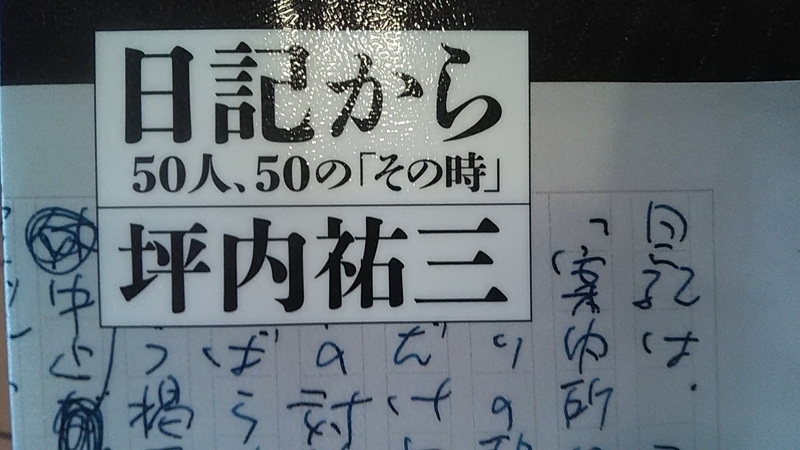 日記から
50人、50の「その時」
坪内祐三
日記は、
「案内所
りの
だけ
の対
ばら
つ掲
中心